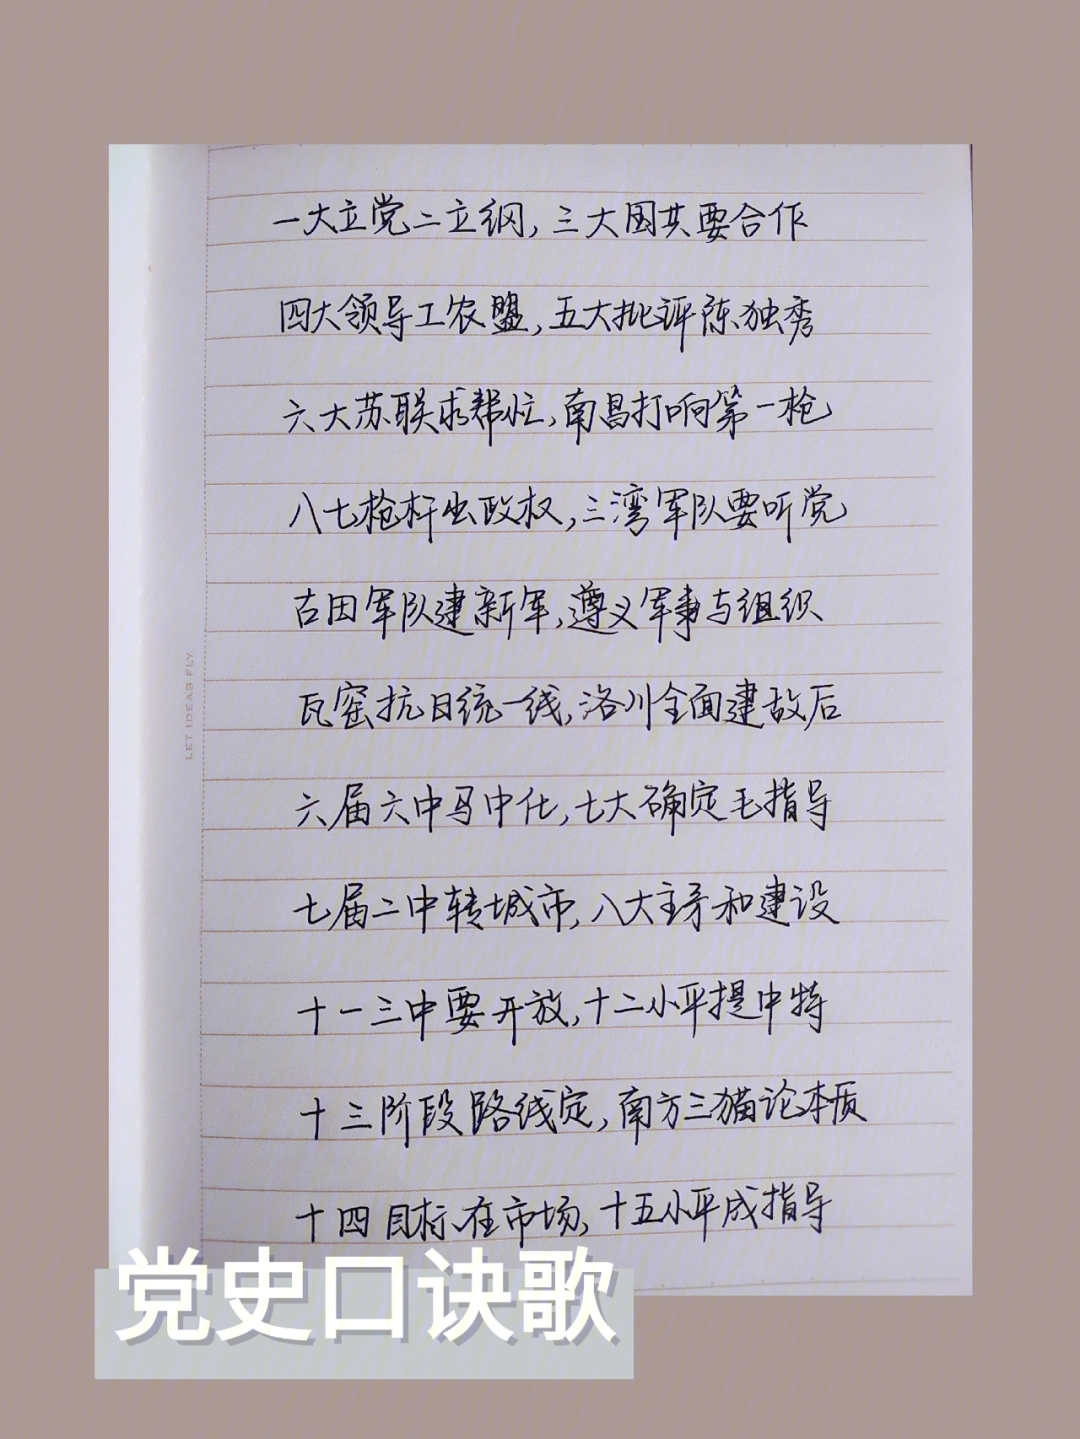 一大立党二立纲,三大国共要合作
四大领导工农盟,五大批评陈独秀
六大苏联求帮忙,南昌打响第一枪
八七枪杆出政权,三湾军队要听党
古田军队建新军,遵义军事与组织
瓦窑抗日统一线,洛川全面建敌后
六届六中马中化,七大确定毛指导
七届二中转城市,八大主矛和建设
十一三中要开放,十二小平提中特
十三阶段路线定,南方三猫论本质
十四目标在市场,十五小平成指导
LET IDEAS FLY
党史口诀歌